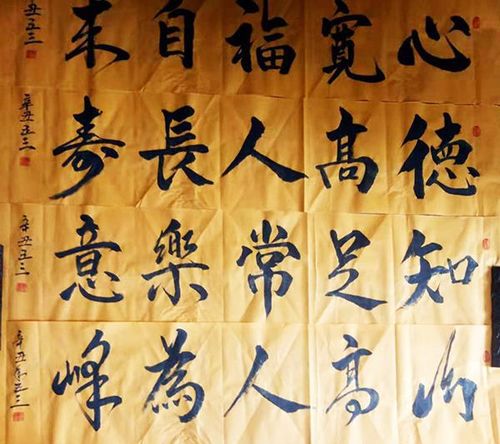 心寬福自来
丑五三
德高人長寿
辛丑五三
知足常樂意
辛丑五三
山高人為峰
辛丑年五三